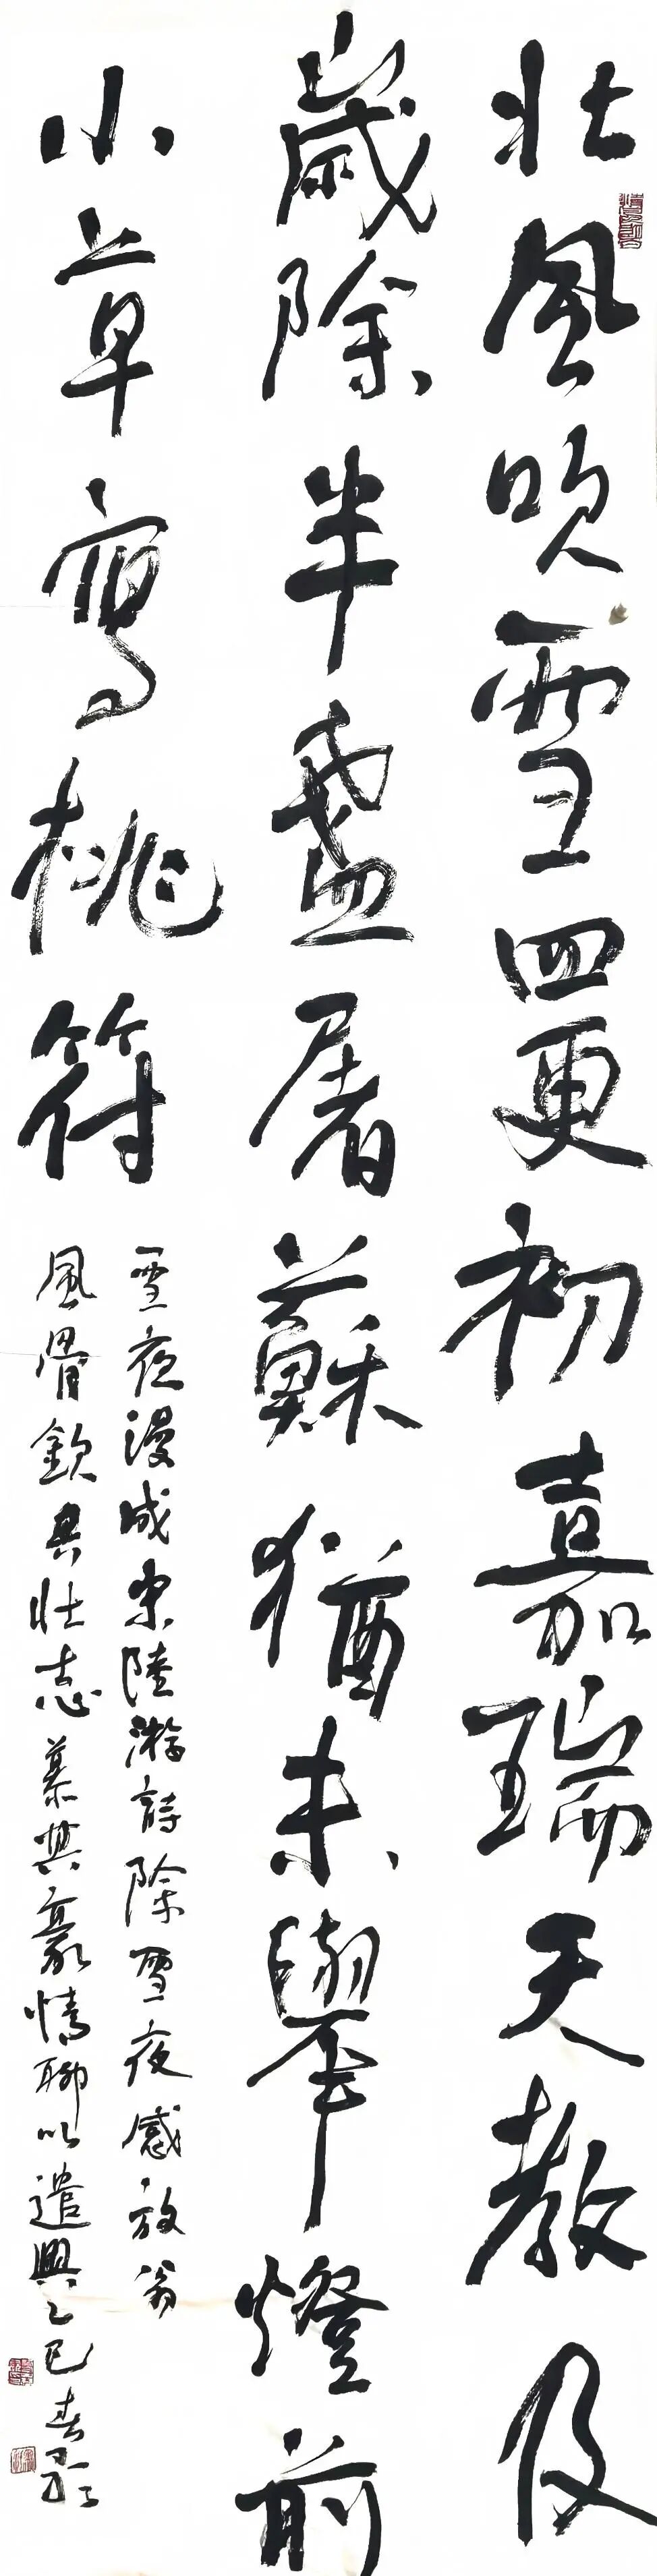 北風吹雪四更初嘉瑞天教及
歲除半盞屠蘇猶未舉燈前
小草寫桃符
雪夜漫成宋陸游詩除雪夜感放翁
風骨欽其壯志慕其豪情聊以遣興乙巳春